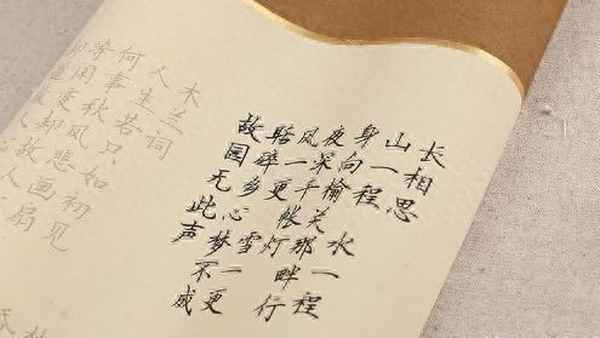 长相思
山一程 水一程
身向榆关那畔行
夜深千帐灯
风一更 雪一更
聒碎乡心梦不成
故园无此声
木兰词
人生若只如初见
何事秋风悲画扇
闲变却故人